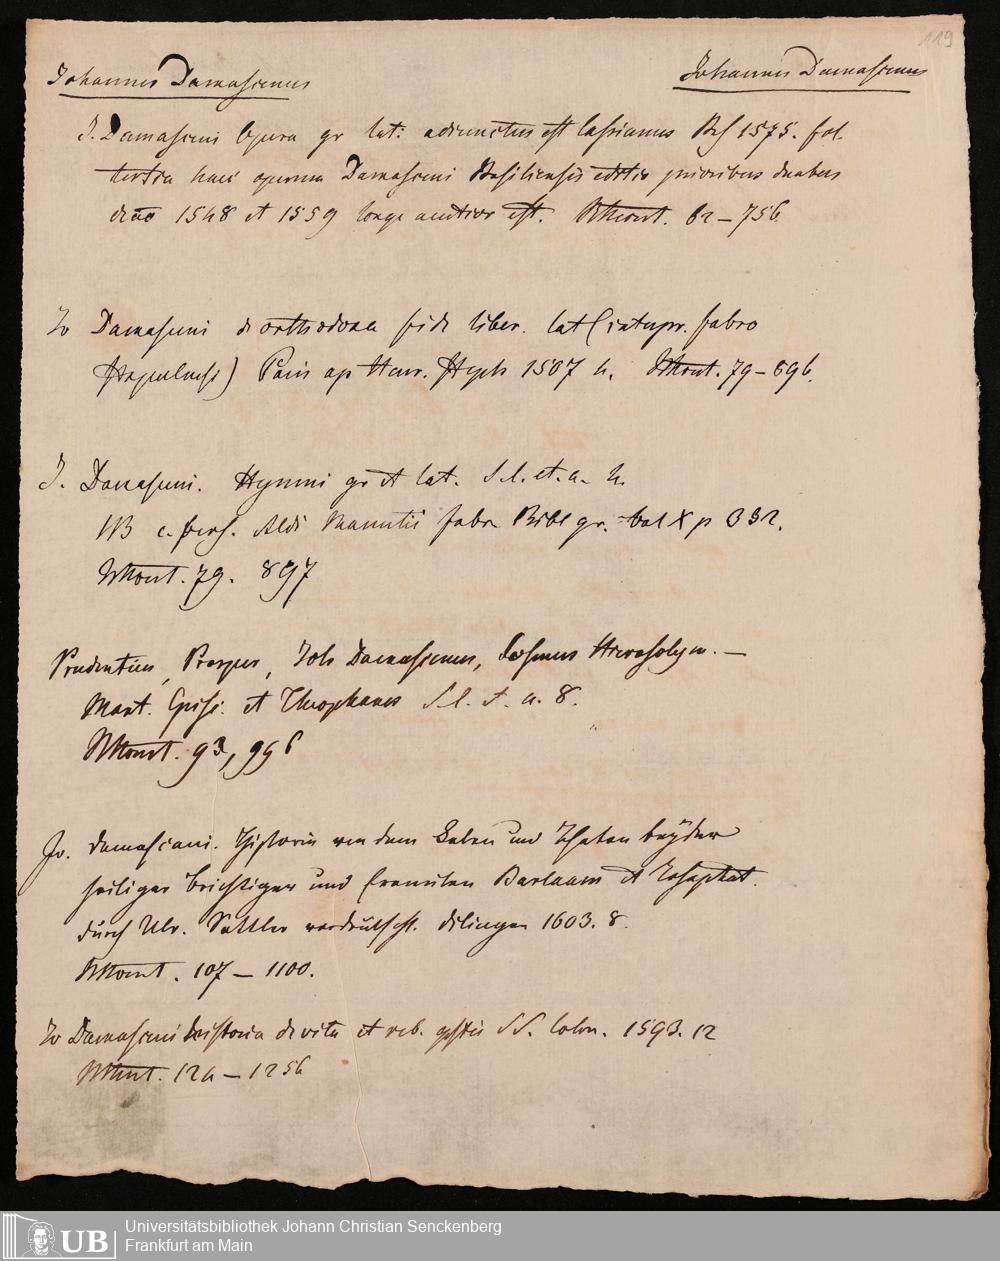 119
Johannes Damascenus
Johannes Damascenus
J. Damasceni Opera gr lat: adiunctus est Cassianus Bas 1575. fol.
tertia haec operum Damasceni Basiliensis editio prioribus duabus
1548 et 1559 longe auctior est. 62–756.
Jo Damasceni de orthodoxa fide liber. lat (interpr. Fabro
Stapulensi) Paris ap Henr. Steph 1507 4. 79–696.
J. Damasceni. Hymni gr et lat. S. l. et. a. 4.
NB e. Aldi Manutii Fabr Bibl gr. vol X p 332.
79. 897
Prudentius, Prosper, Joh Damascenus, Cosmus Hierosolym. –
Mart. Episc. et Theophanes S. l. et. a. 8.
93, 996
Jo. Damasceni. Historia von dem Leben und Thaten beyder
heiligen Beichtiger und Eremiten Barlaam et Josaphat.
durch Ulr. Sattler verdeutscht. Dilingen 1603. 8.
107 – 1100.
Jo Damasceni historia de vita et reb. gestis SS. Colon. 1593. 12
124 – 1256
UB
Universitätsbibliothek Johann Christian Senckenberg
Frankfurt am Main